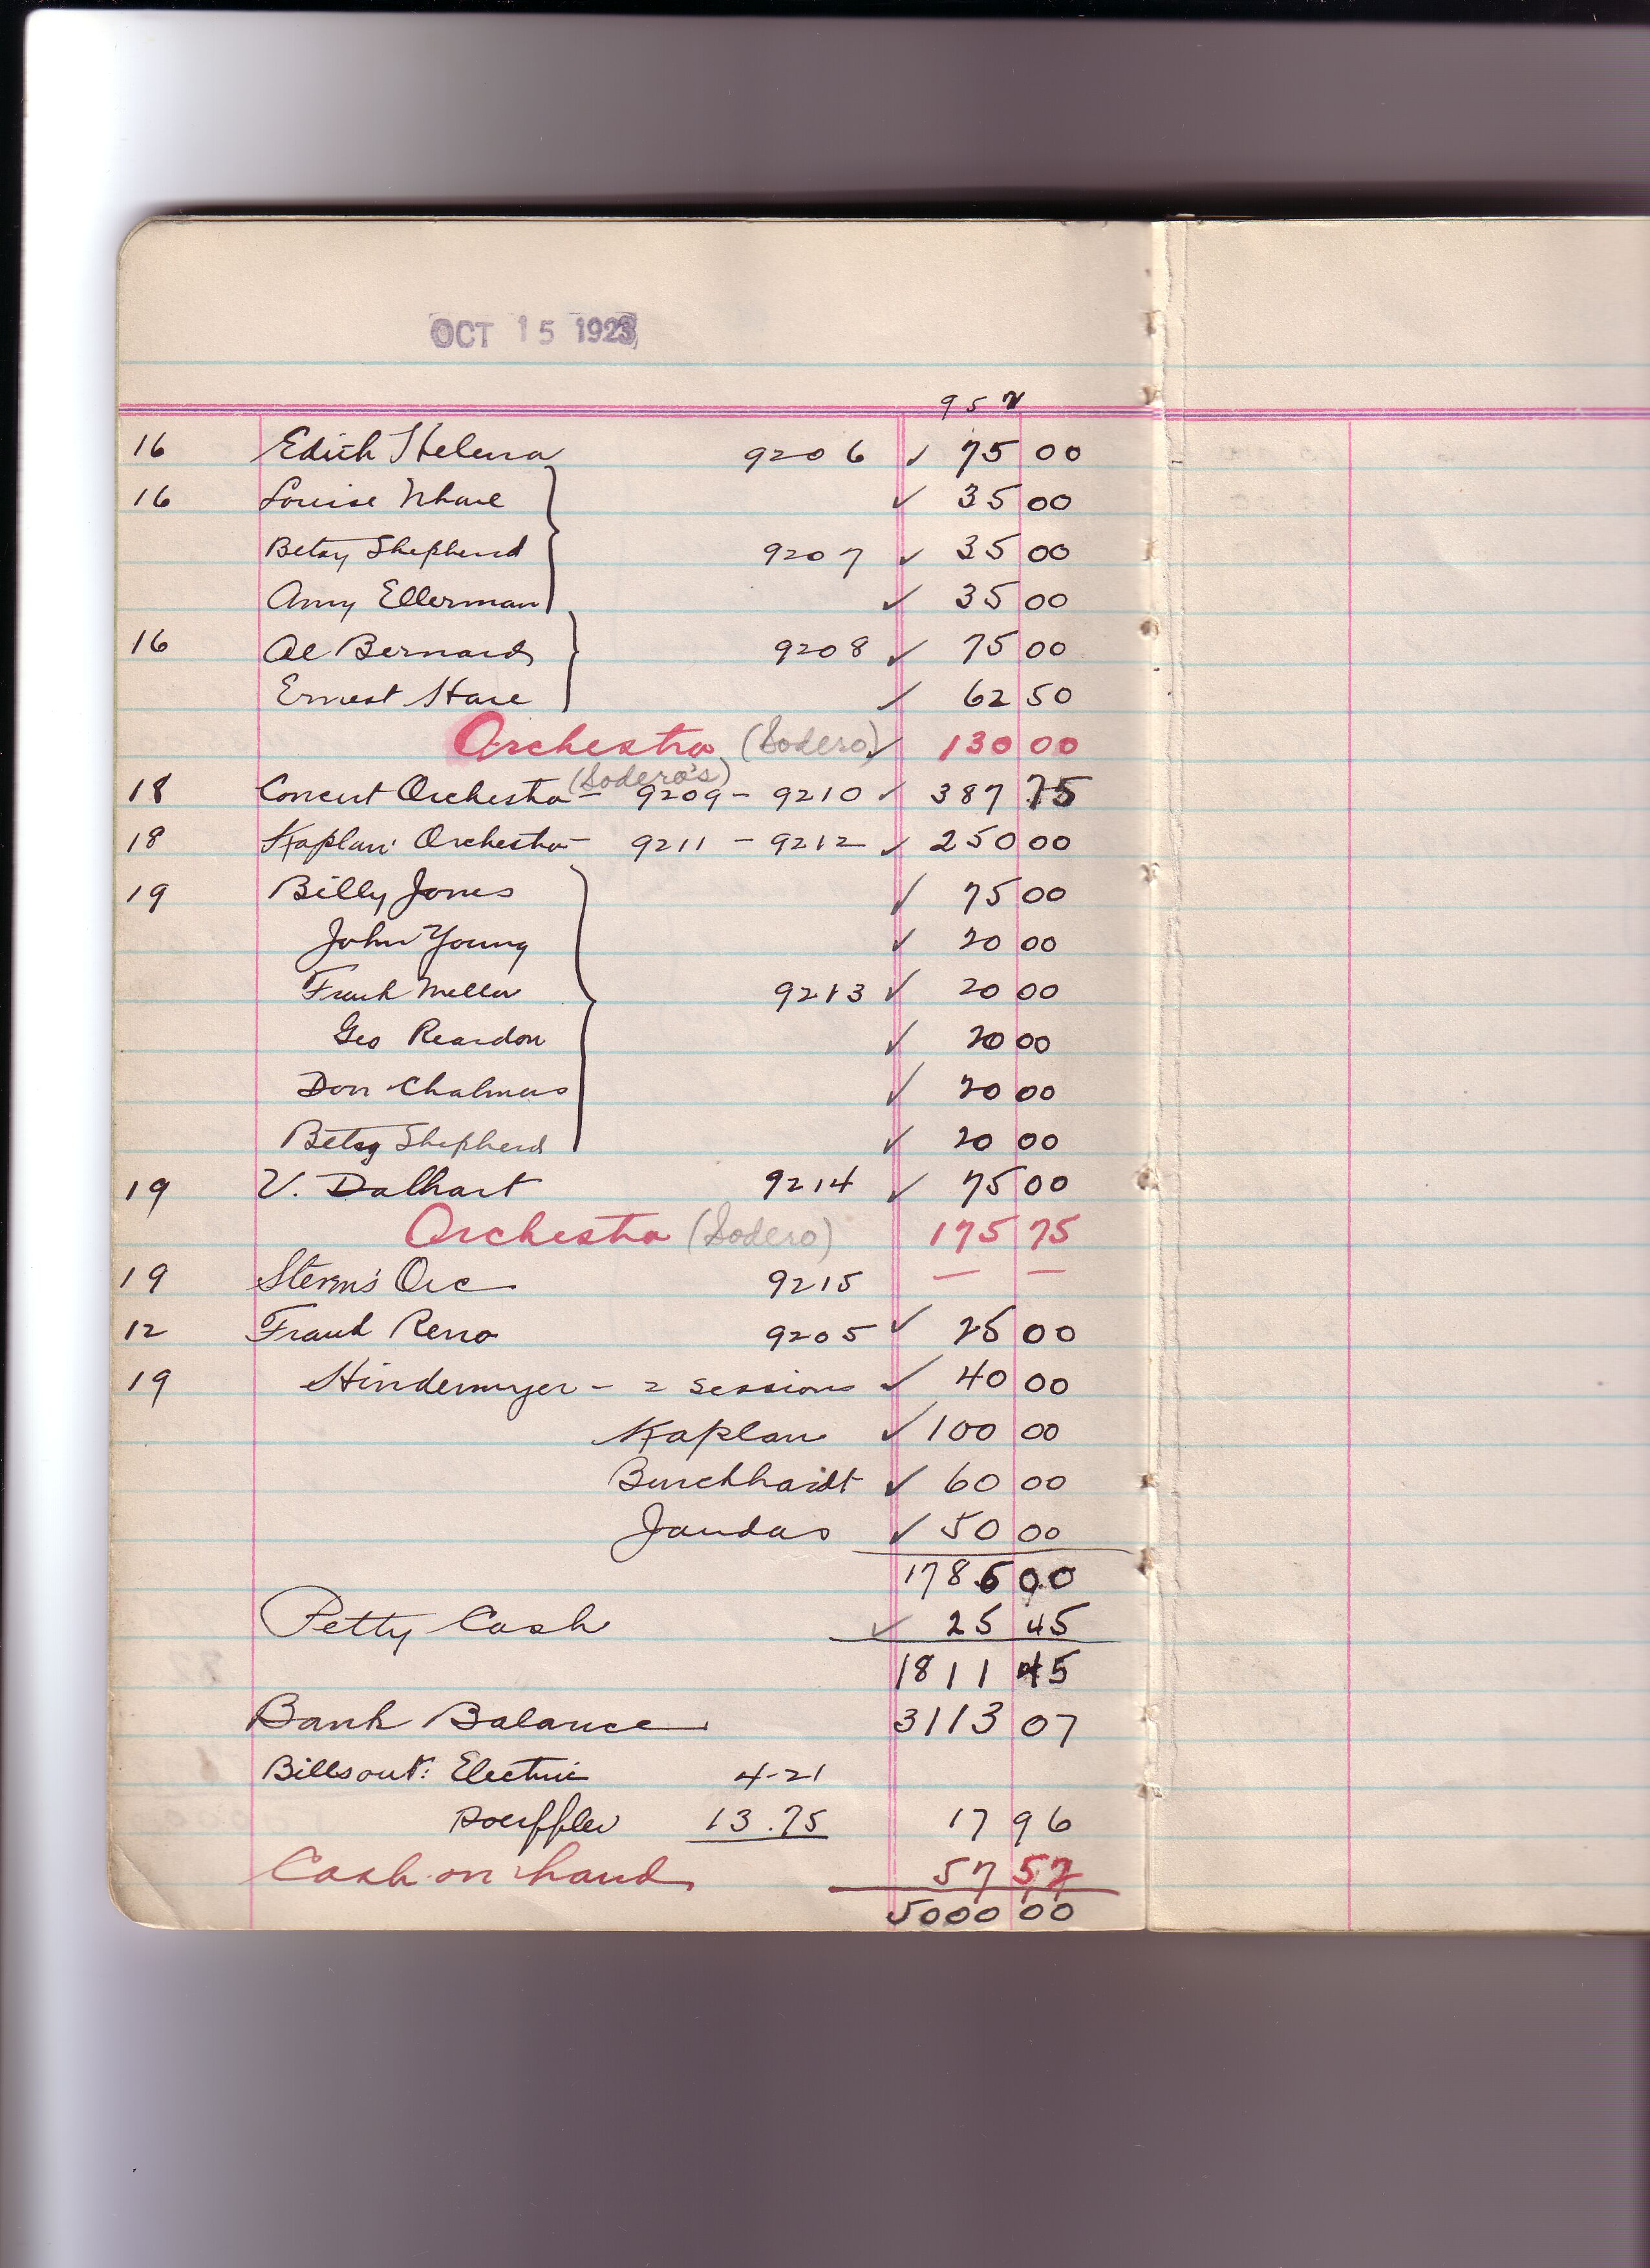 OCT 15 1923
957
16 Edith Helena 9206 ✓ 75 00
16 Louise ✓ 35 00
Betsy Shepherd 9207 ✓ 35 00
Amy Ellerman ✓ 35 00
16 Al Bernard 9208 ✓ 75 00
Ernest Hare ✓ 62 50
Orchestra (Sodero) ✓ 130 00
(Sodero's)
18 Concert Orchestra - 9209 - 9210 ✓ 387 75
18 Kaplan Orchestra - 9211 - 9212 ✓ 250 00
19 Billy Jones ✓ 75 00
John Young ✓ 20 00
Frank Mellor 9213 ✓ 20 00
Geo Reardon ✓ 20 00
Don Chalmers ✓ 20 00
Betsy Shepherd ✓ 20 00
19 V. Dalhart 9214 ✓ 75 00
Orchestra (Sodero) 175 75
19 Stern's Orc 9215 — —
12 Frank Reno 9205 ✓ 25 00
19 Hindermyer - 2 sessions ✓ 40 00
Kaplan ✓ 100 00
Burchhardt ✓ 60 00
Jandas ✓ 50 00
1786 00
Petty Cash ✓ 25 45
1811 45
Bank Balance 3113 07
Bills out: Electric 4-21
13.75 17 96
Cash on hand 57 52
5000 00